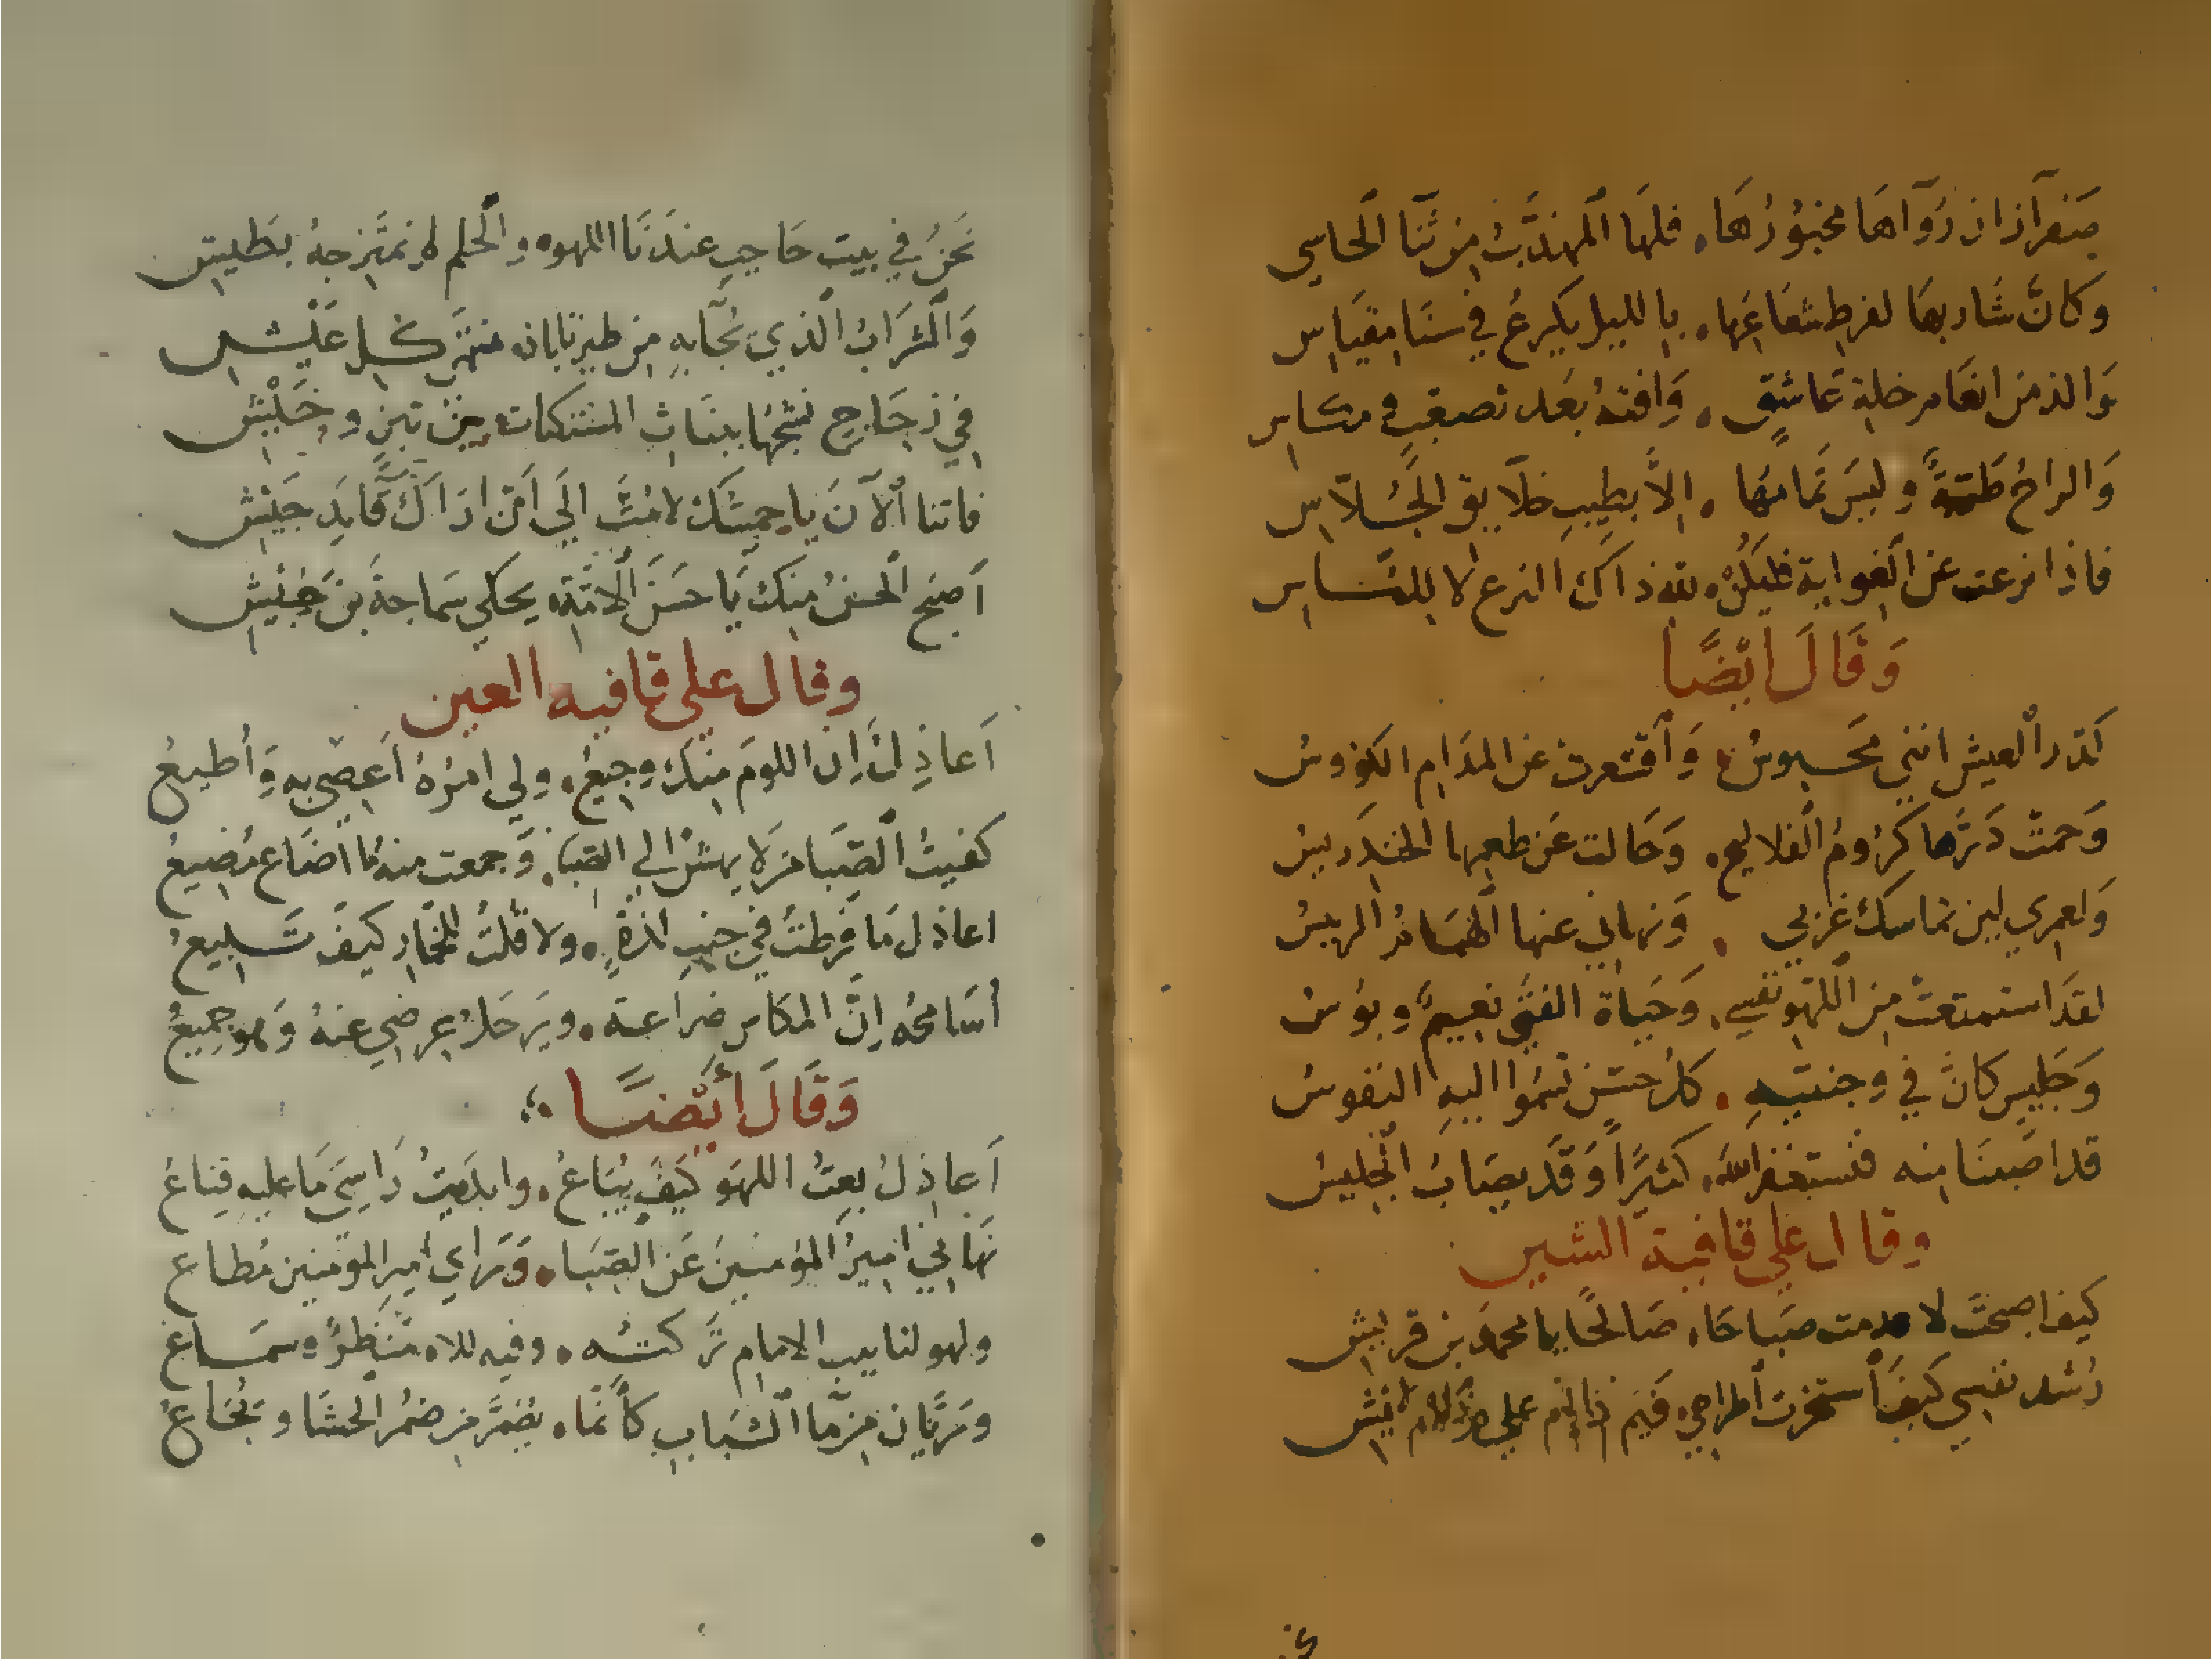 صفرآ زان رواها مخبورها فلها المهذب من ثنا الحاسي
وكان شاربها لفرط شعاعها بالليل يكرع في سنا مقياس
والذ من انعام خلة عاشق وافته بعد تصعب مكاس
والراح طيبة وليس تمامها الا بطيب خلايق الجلاس
فاذا نزعت عن الغواية فليكن لله ذاك النزع لا للناس
وقال ايضا
كدر العيش انني محبوس واقشعرت عن المدام الكؤوس
وحمت درها كروم الفلاليج وحالت عن طعمها الخندريس
ولعمري لين تماسك غربي ونهاني عنها الرييس
لقد استمتعت من اللهو نفسي وحياة الفتى نعيم وبؤس
وجليس كان في وجنتيه كل حسن تسموا اليه النفوس
قد اصبنا منه فنستغفر الله كثيرا وقد يصاب الجليس
وقال على قافية الشين
كيف اصبحت لا عدمت صباحا صالحا يا محمد بن قريش
رشد نفسي كيف استخرت اطراحي فيم ذا
نحن في بيت حاجب عندنا اللهو والحلم لم نمتزجه بطيش
والشراب الذي نجآ به من طيرناباذ منتهى كل عيش
في زجاج نشجها ببنات المشتكات بين تبن وخيش
فاتنا الآن يا جمشك لا مت الى ان اراك قايد جيش
اصبح الحسن منك يا حسن الامة يحكي سماجة بن حبيش
وقال على قافيه العين
اعاذل ان اللوم منك وجيع ولي امرة اعصي به واطيع
كفيت الصبا من لا يهش الى الصبا وجمعت منه ما اضاع مضيع
اعاذل ما فرطت في جنب لذة ولا قلت للخمار كيف تبيع
اسامحه ان المكاس ضراعة ويرحل عرضي عنه وهو جميع
وقال أيضا
اعاذل بعت اللهو كيف يباع وابديت راسي ما عليه قناع
نهاني امير المؤمنين عن الصبا وراي امير المؤمنين مطاع
ولهو لتاييب الامام تركته وفيه للاه منظر وسماع
وريان من ما الشباب كأنما يضمر من ضمر الحشا ويجاع